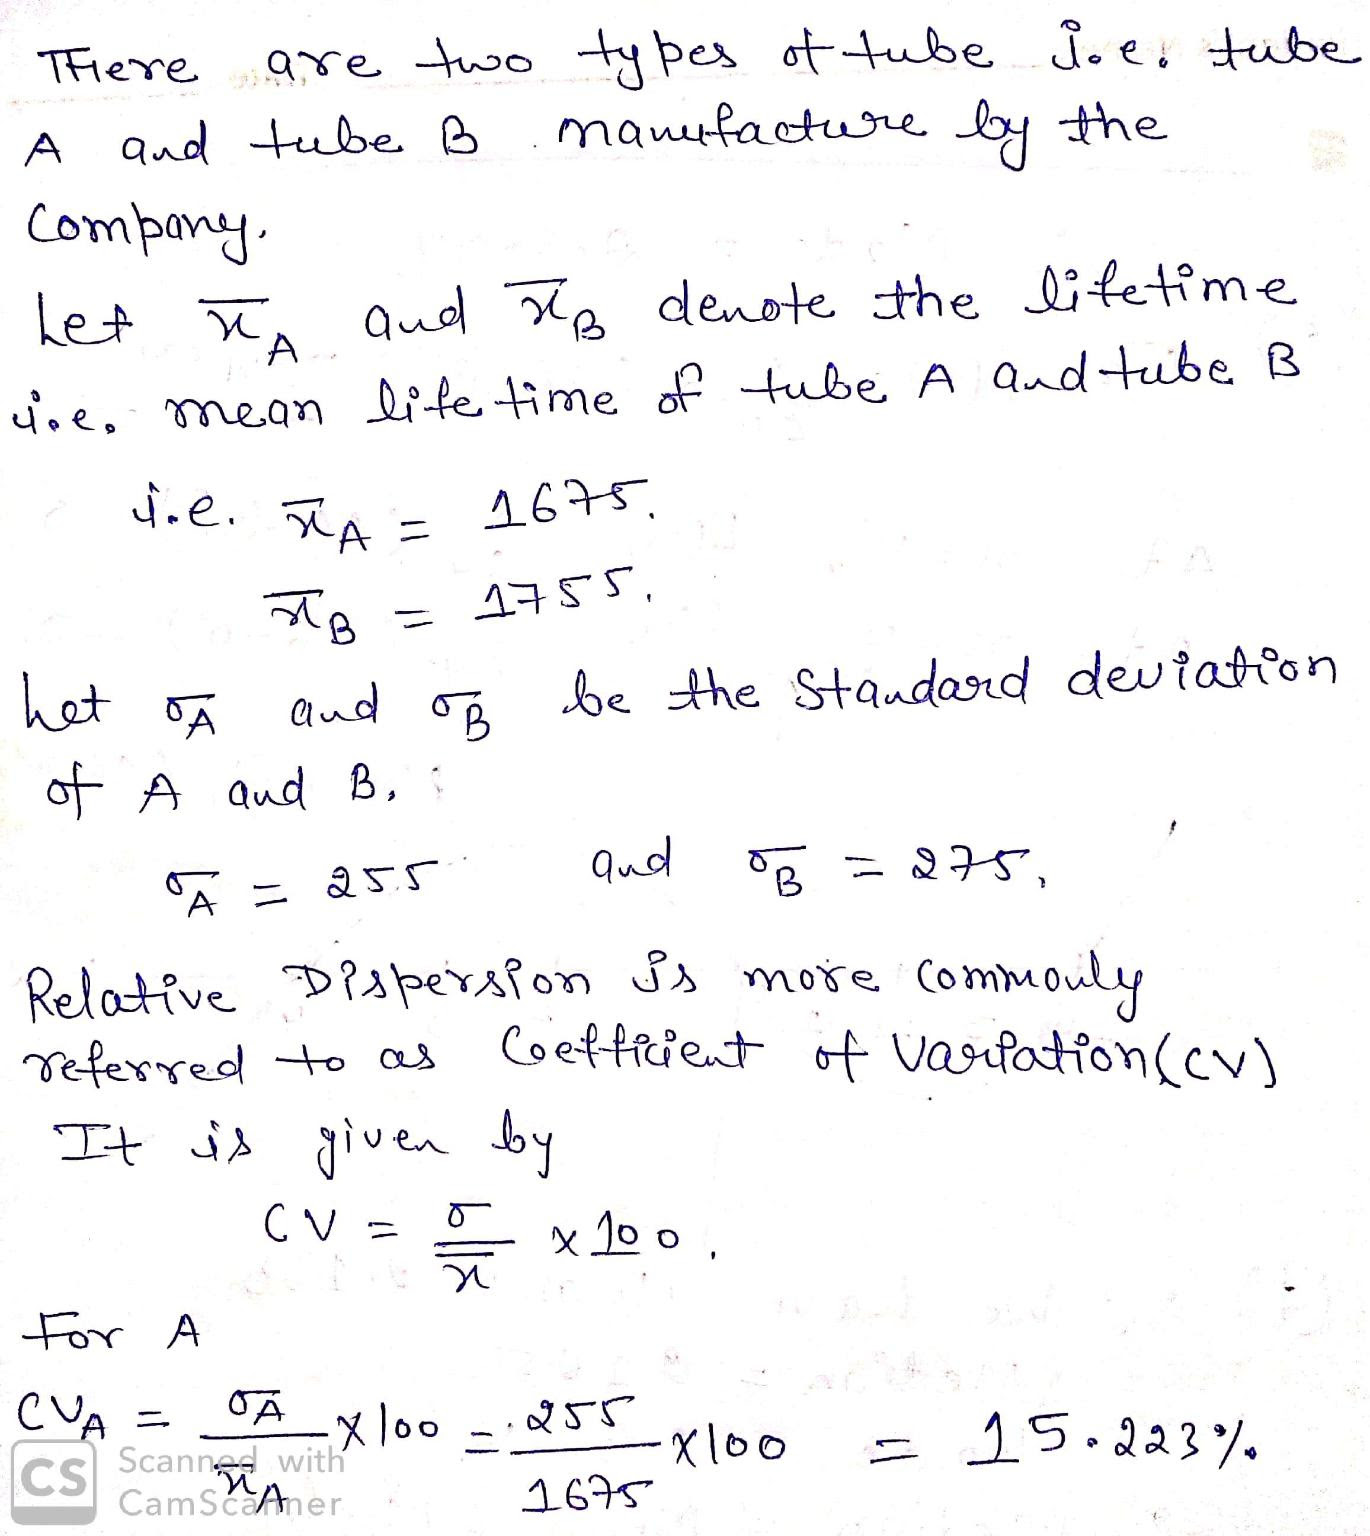 There are two types of tube i.e. tube
A and tube B manufacture by the
Company.
Let x̄_A and x̄_B denote the lifetime
i.e. mean life time of tube A and tube B
i.e. x̄_A = 1675.
x̄_B = 1755.
Let σ_A and σ_B be the Standard deviation
of A and B.
σ_A = 255 and σ_B = 275,
Relative Dispersion is more commonly
referred to as Coefficient of Variation (CV)
It is given by
CV = σ/x̄ × 100.
For A
CV_A = σ_A/x̄_A × 100 = 255/1675 × 100 = 15.223%
CS Scanned with
CamScanner